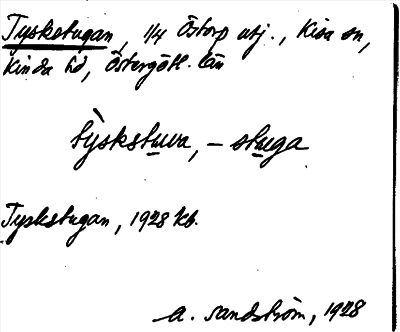 Tyskstugan, 1/4 Östorp utj., Kisa sn,
Kinda hd, Östergötl. län
tỳskstuva, – stuga
Tyskstugan, 1928 kb.
A. Sandström, 1928